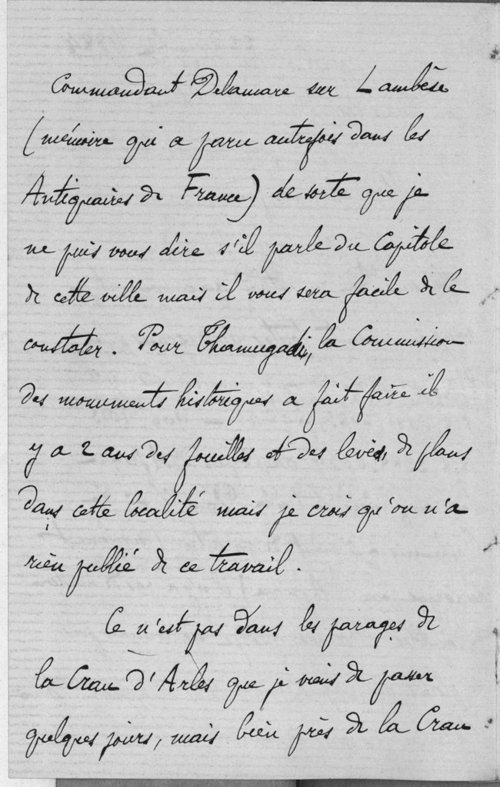 Commandant Delamare sur Lambèse
(mémoire qui a paru autrefois dans les
Antiquaires de France) de sorte que je
ne puis vous dire s'il parle du Capitole
de cette ville mais il vous sera facile de le
constater. Pour Thamugadi, la Commission
des monuments historiques a fait faire il
y a 2 ans des fouilles et des levés de plans
dans cette localité mais je crois qu'on n'a
rien publié de ce travail.
Ce n'est pas dans les parages de
la Crau d'Arles que je viens de passer
quelques jours, mais bien près de la Crau